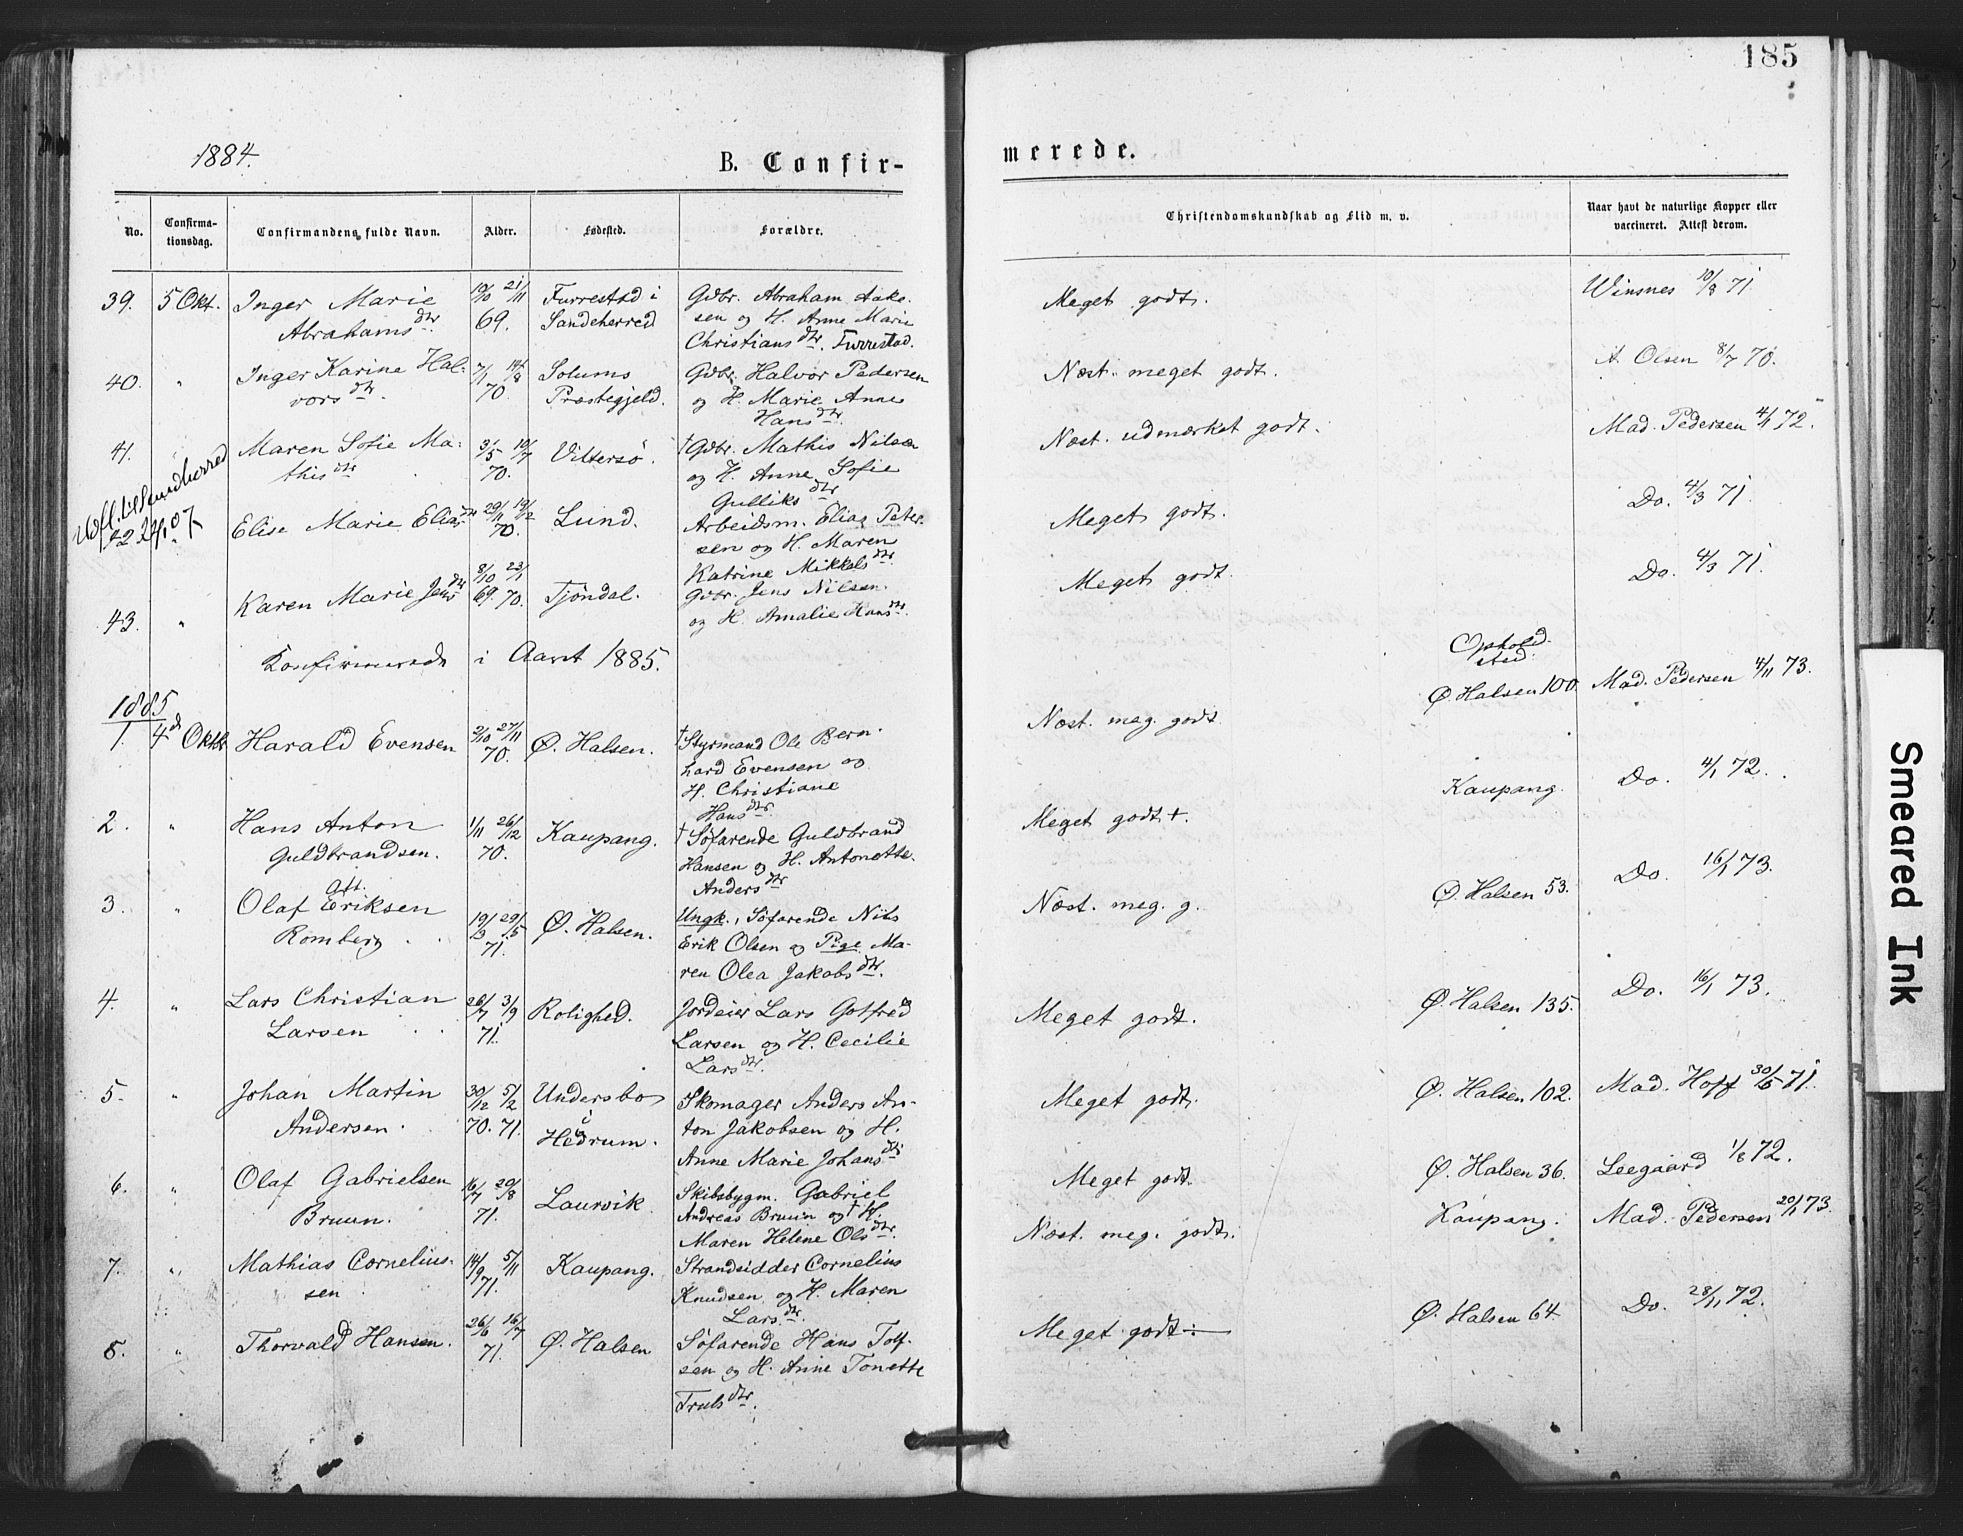 185
1884.
B. Confir-
merede.
No.
Confirma-
tionsdag.
Confirmandens fulde Navn.
Alder.
Fødested.
Forældre.
Christendomskundskab og Flid m. v.
Naar havt de naturlige Kopper eller
vaccineret. Attest derom.
39. 5 Okt. Inger Marie
Abrahamsdtr.
19/10 21/11
69.
Furrestad i
Sandeherred
Gdbr. Abraham Aake-
sen og H. Anne Marie
Christiansdtr. Furrestad.
Meget godt.
Winsnes 10/8 71
40. " Inger Karine Hal-
vorsdtr.
7/1 14/8
70.
Solums
Præstegjeld.
Gdbr. Halvor Pedersen
og H. Marie Anne
Hansdtr.
Næst. meget godt.
A. Olsen 8/7 70.
41. Maren Sofie Ma-
thisdtr.
3/5 10/7
70.
Viltersö.
† Gdbr. Mathis Nilsen
og H. Anne Sofie
Gulliksdtr
Næst. udmærket godt.
Mad. Pedersen 4/1 72.
Elise Marie Eliasdtr
29/11 19/12
70.
Lund.
Arbeidsm. Elias Peter-
sen og H. Maren
Katrine Mikkelsdtr.
Meget godt.
Do. 4/3 71.
43. " Karen Marie Jensdtr
8/10 23/1
69. 70.
Tjöndal.
Gdbr. Jens Nilsen
og H. Amalie Hansdtr.
Meget godt.
Do. 4/3 71.
Konfirmerede i Aaret 1885.
Ophold-
sted:
1885
1. 4de Oktbr
Harald Evensen
2/10 27/11
70.
Ø. Halsen.
† Styrmand Ole Bern-
hard Evensen og
H. Christiane
Hansdtr.
Næst. meg. godt
Ø. Halsen 100.
Mad. Pedersen 4/11 73.
2. " Hans Anton
Guldbrandsen.
1/11 26/12
70.
Kaupang.
† Söfarende Guldbrand
Hansen og H. Antonette
Andersdtr
Meget godt +.
Kaupang.
Do. 4/1 72.
3. " Olaf Eriksen
Romberg
19/3 29/5
71.
Ø. Halsen.
Ungk., Söfarende Nils
Erik Olsen og Pige Ma-
ren Olea Jakobsdtr.
Næst. meg. g.
Ø. Halsen 53.
Do. 16/1 73.
4. " Lars Christian
Larsen
26/7 3/9
71.
Rolighed.
Jordeier Lars Gotfred
Larsen og H. Cecilie
Larsdtr.
Meget godt.
Ø. Halsen 135.
Do. 16/1 73.
5. " Johan Martin
Andersen.
30/12 5/2
70. 71.
Undersbo
i
Hedrum.
Skomager Anders An-
ton Jakobsen og H.
Anne Marie Johansdtr
Meget godt.
Ø. Halsen 102.
Mad. Hoff 30/5 71.
6. " Olaf Gabrielsen
Bruun.
16/7 20/8
71.
Laurvik
Skibsbygm. Gabriel
Andreas Bruun og † H.
Maren Helene Olsdtr.
Meget godt.
Ø. Halsen 36.
Leegaard 1/8 72.
7. " Mathias Cornelius-
sen
14/9 5/11
71.
Kaupang.
Strandsidder Cornelius
Knudsen og H. Maren
Larsdtr.
Næst. meg. godt.
Kaupang.
Mad. Pedersen 20/1 73.
8. " Thorvald Hansen.
26/6 16/7
71.
Ø. Halsen
Söfarende Hans Tolf-
sen og H. Anne Tonette
Trulsdtr.
Meget godt ÷
Ø. Halsen 64.
Do. 28/11 72.
Smeared Ink